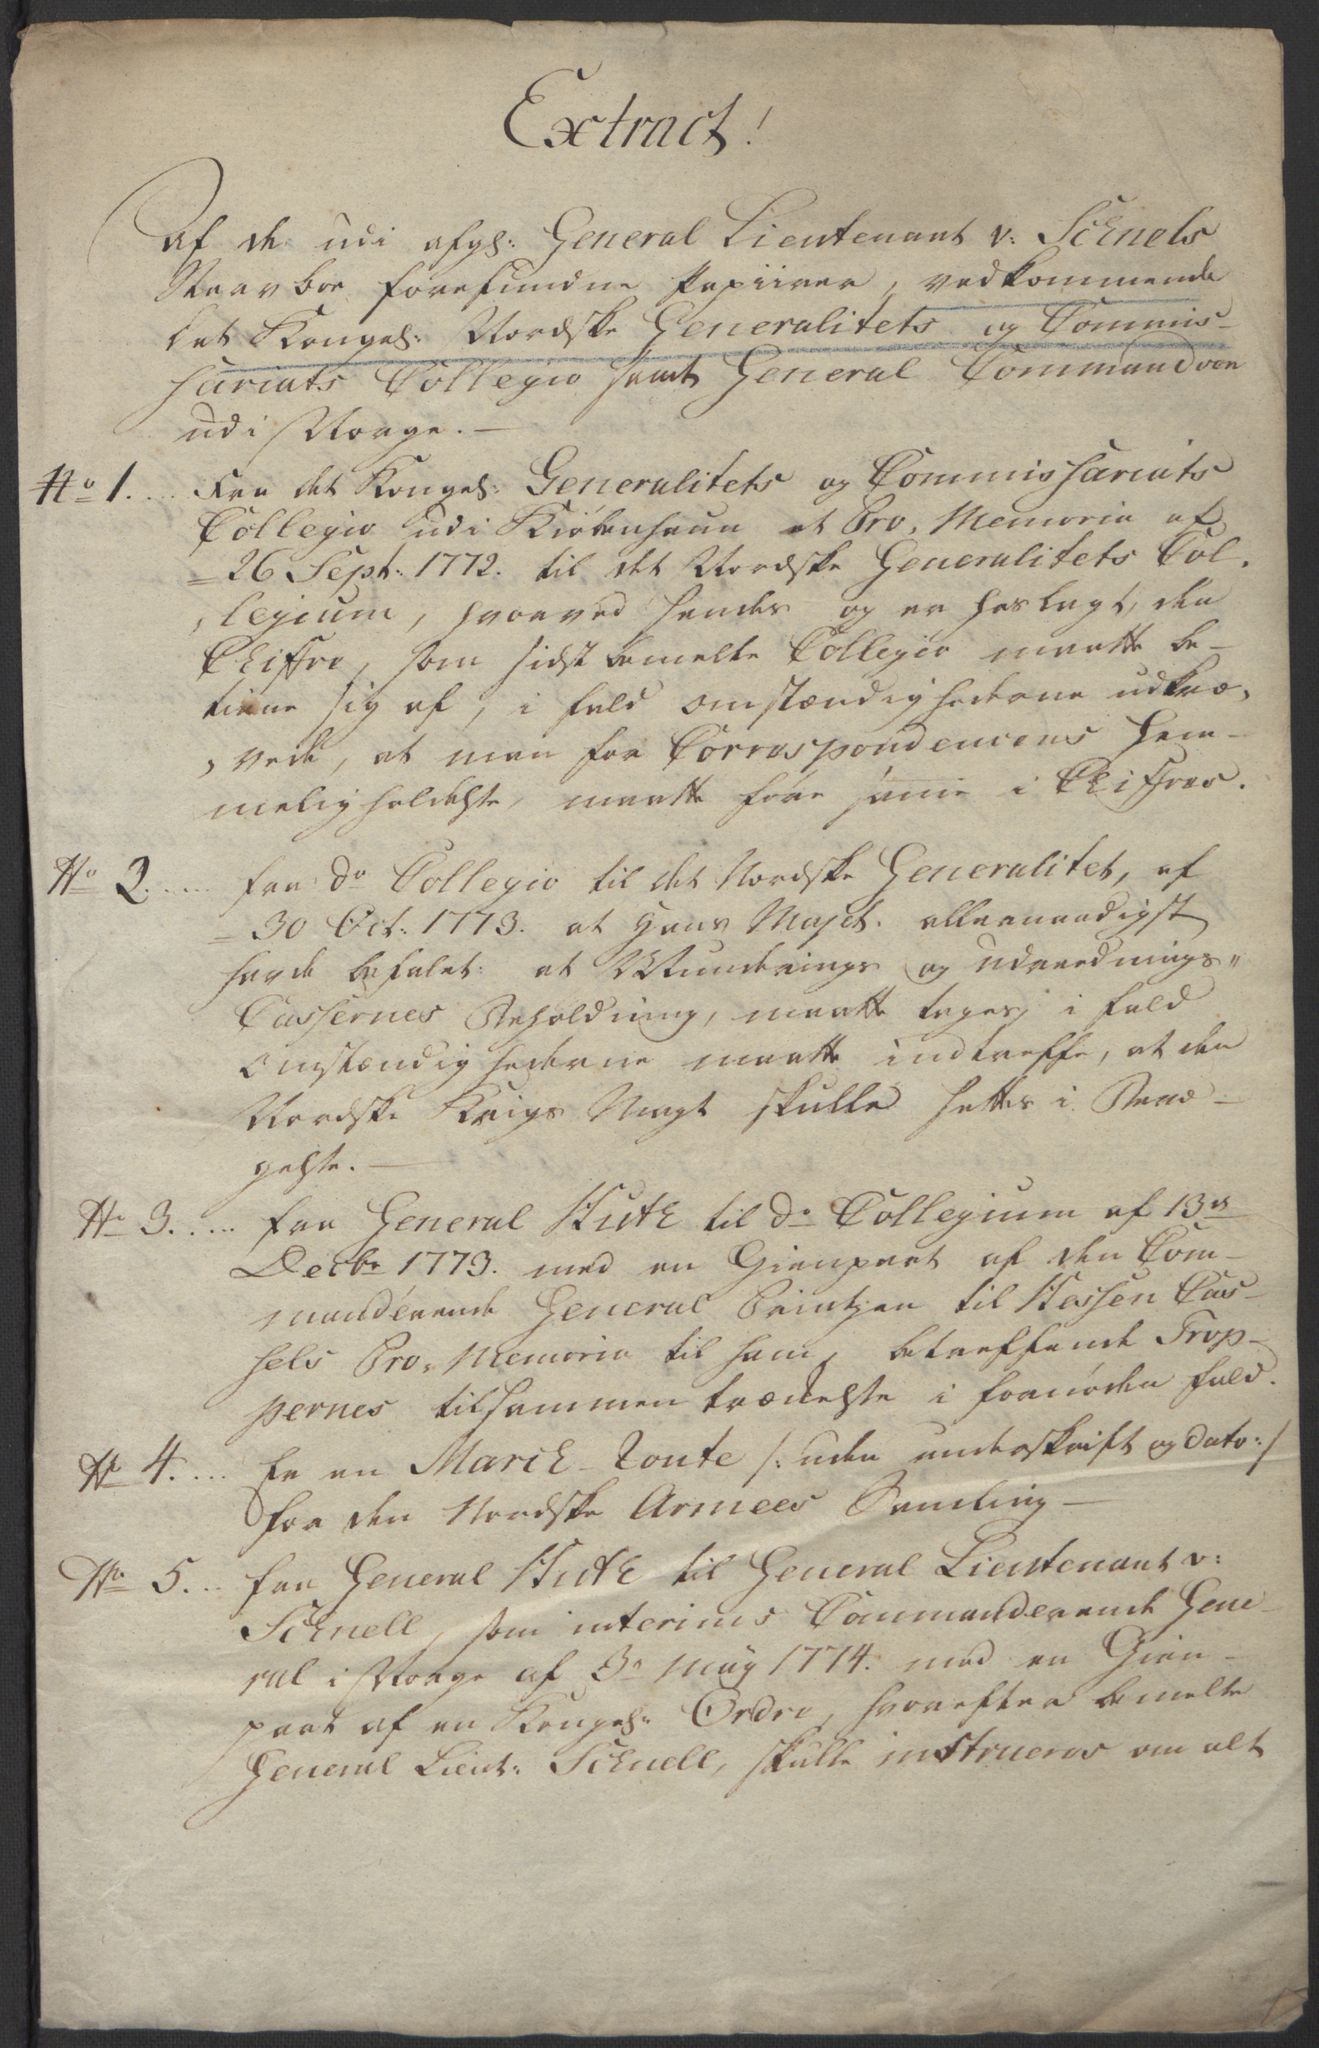 Extract!
Af de udi afgl: General Lieutenant v: Schnels
Stervboe forefundne Papiirer, vedkommende
det Kongel: Nordske Generalitets og Commis-
sariats Collegio samt General Commandoen
udi Norge.-
No 1. .. Fra det Kongel: Generalitets og Commissariats
Collegio udi Kiøbenhaun et Pro. Memoria af
26 Sept: 1772. til det Nordske Generalitets Col.
,legium, hvorved sendes og er heslagt, den
Chiffre, som sidst bemelte Collegio maatte be-
tiene sig af, i fald omstændighederne udkræ,
,vede, at man for Correspondencens Hem-
meligholdelse, maatte føre samme i Chiffres.
No 2. ... fra do Collegio til det Nordske Generalitet, af
30 Oct: 1773. at Hans Mayst. allernaadigst
havde befalet: at Munderings og udrednings"
Cassernes Beholdning, maatte tages, i fald
omstændighederne maatte indtreffe, at den
Nordske Krigs Magt skulle settes i Bevæ-
gelse.-
No 3. ... fra General Huth til do Collegium af 13de
Decbr 1773. med en Gienpart af den Com-
manderende General Printzen til Hessen Cas-
sels Pro. Memoria til ham, betreffende Trop-
pernes tilsammentrædelse i fornøden fald.
No 4. ... Er en March-Route /: uden underskrift og dato:/
for den Nordske Armees Samling-
No 5. .. fra General Huth til General Lieutenant v:
Schnell, som interims Commanderende Gene-
ral i Norge af 3e May 1774. med en Gien-
part af en Kongel: Ordre, hvorefter bemelte
General Lieut: Schnell, skulle instrueres om alt